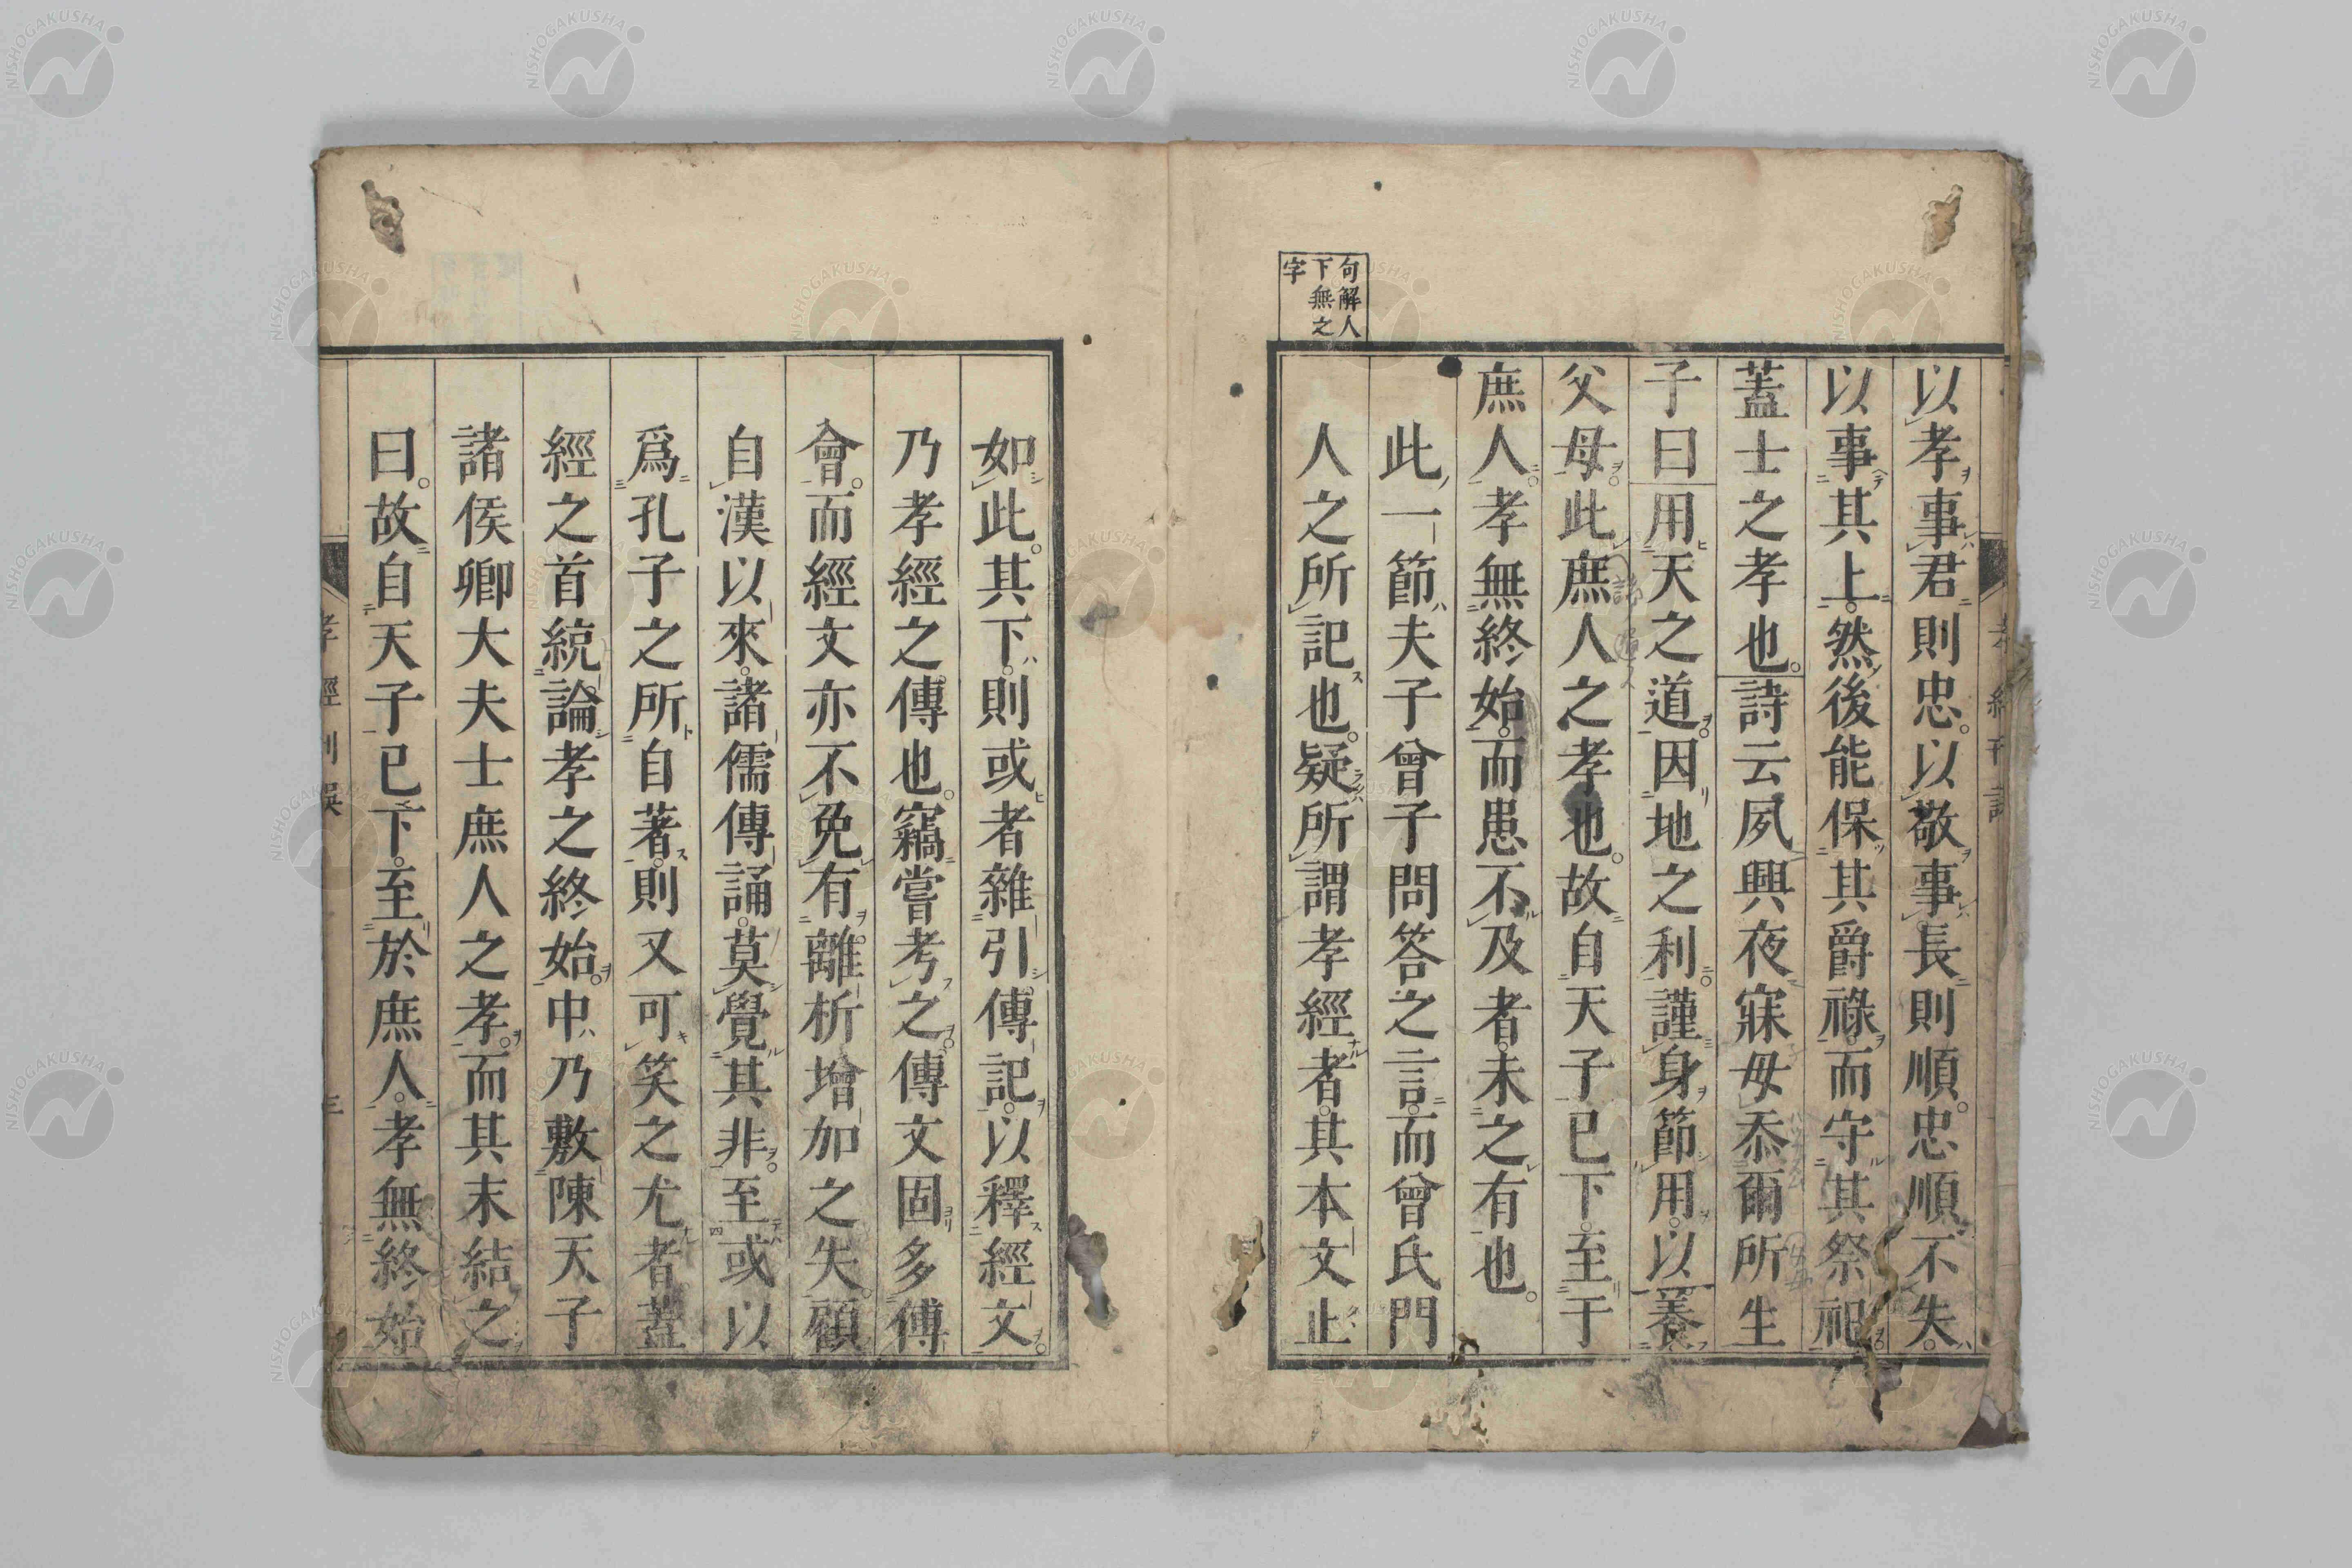 以孝事君則忠。以敬事長則順。忠順不失。
以事其上。然後能保其爵祿。而守其祭祀。
蓋士之孝也。詩云夙興夜寐毋忝爾所生
子曰用天之道。因地之利。謹身節用。以養
父母。此庶人之孝也。故自天子已下。至于
庶人。孝無終始。而患不及者。未之有也。
句解人
下無之
字
此一節夫子曾子問答之言。而曾氏門
人之所記也。疑所謂孝經者。其本文止
如此。其下。則或者雜引傳記。以釋經文。
乃孝經之傳也。竊嘗考之。傳文固多傅
會。而經文亦不免有離析增加之失。顧
自漢以來。諸儒傳誦。莫覺其非。至或以
爲孔子之所自著。則又可笑之尤者蓋
經之首統論孝之終始。中乃敷陳天子
諸侯卿大夫士庶人之孝。而其末結之
曰。故自天子已下。至於庶人。孝無終始
孝經刊誤
三
NISHOGAKUSHA